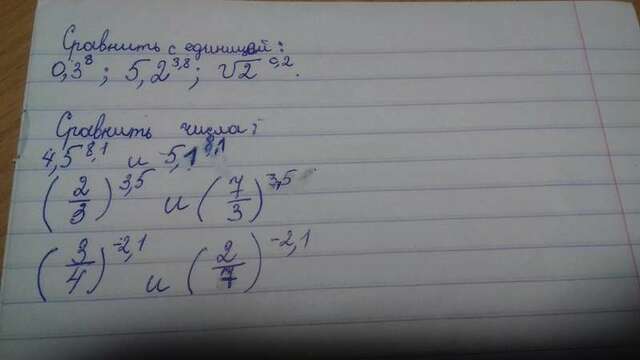 Сравнить с единицей:
0,3⁸; 5,2³,⁸; √2 ⁰,².
Сравнить числа:
4,5⁸,¹ и 5,1⁸,¹
(2/3)³,⁵ и (7/3)³,⁵
(3/4)⁻²,¹ и (2/7)⁻²,¹